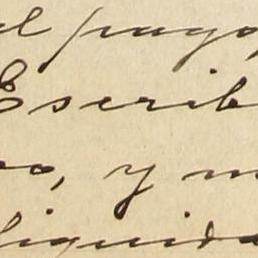 el pago,
Escrib
os, y m
liquida